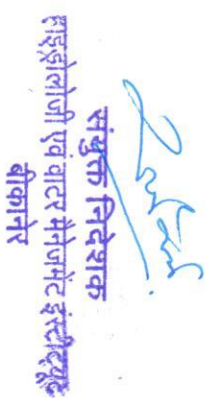 संयुक्त निदेशक
हाइड्रोलोजी एवं वाटर मैनेजमेंट इंस्टीट्यूट
बीकानेर